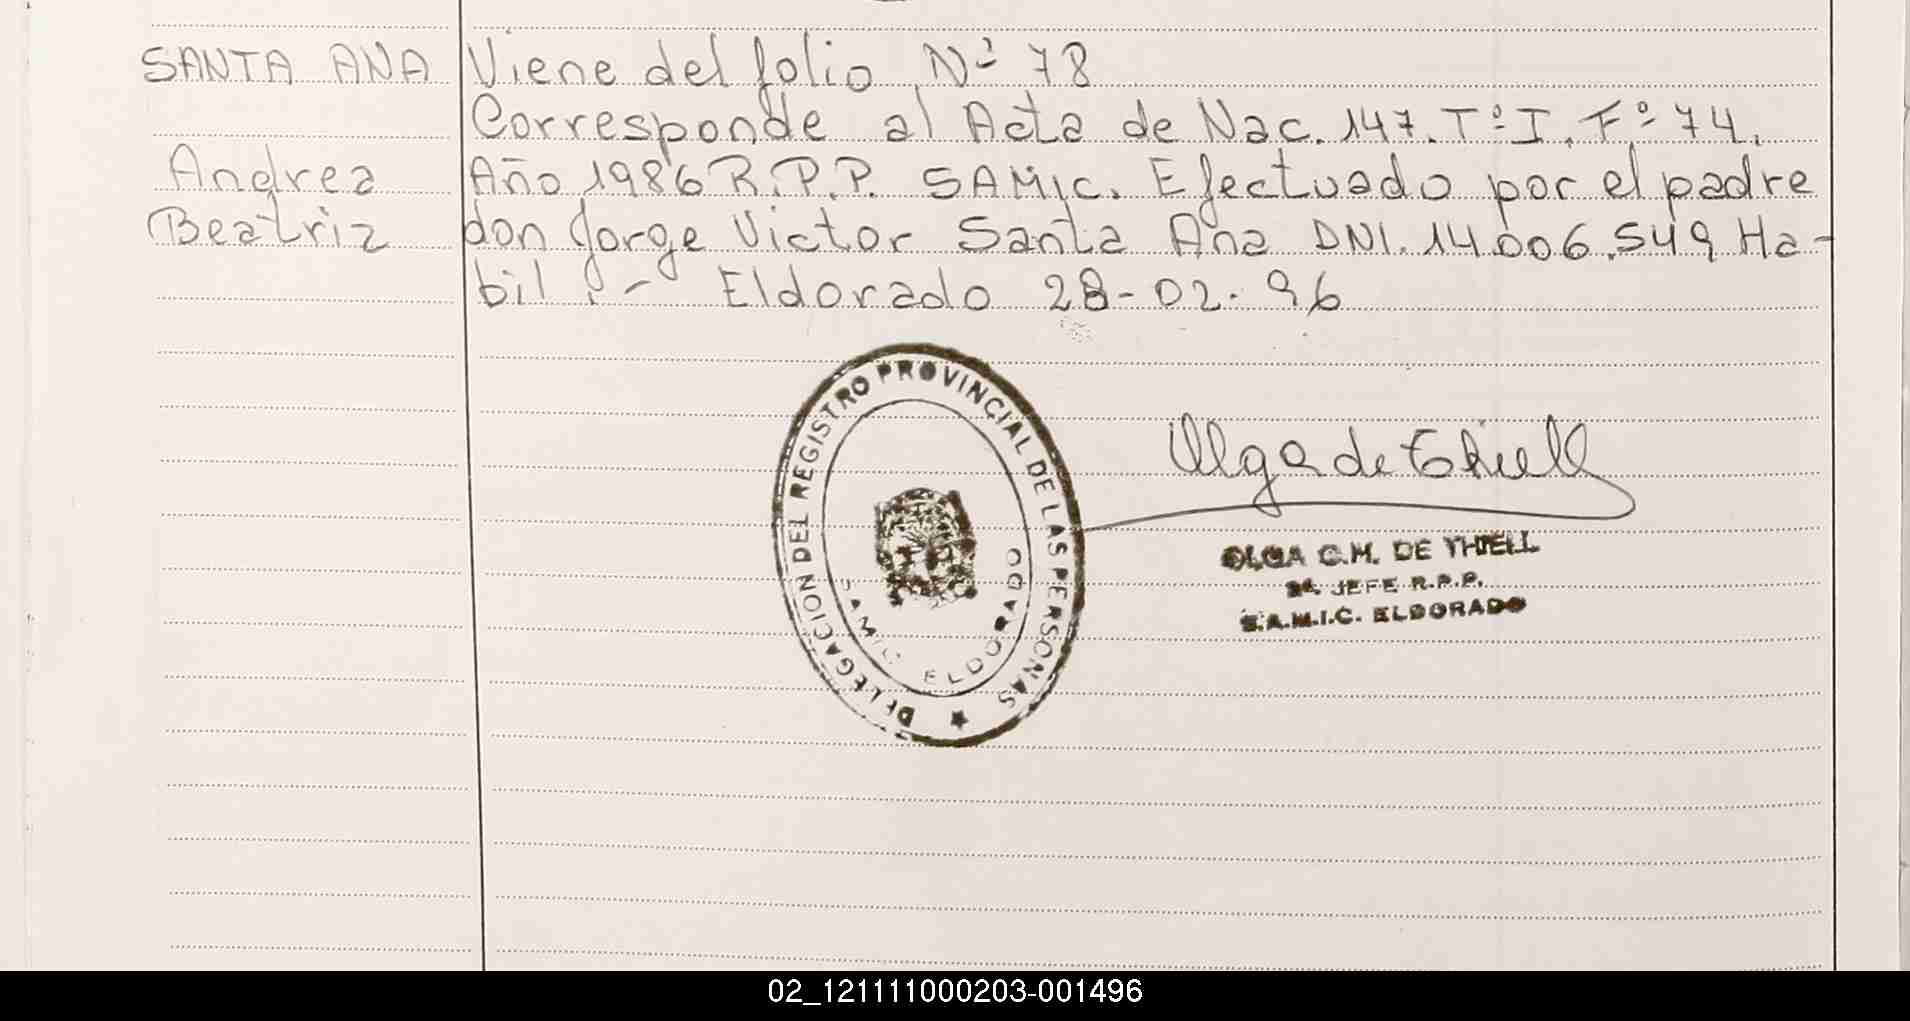 SANTA ANA
Viene del folio Nº 78
Corresponde al Acta de Nac. 147. Tº I. Fº 74.
Andrea
Año 1986 R.P.P. SAMIC. Efectuado por el padre
Beatriz
don Jorge Victor Santa Ana DNI. 14.006.549 Ha-
bil :- Eldorado 28-02-96
DELEGACION DEL REGISTRO PROVINCIAL DE LAS PERSONAS
SAMIC ELDORADO
Olga de Thiell
OLGA C.H. DE THIELL
JEFE R.P.P.
S.A.M.I.C. ELDORADO
02_121111000203-001496